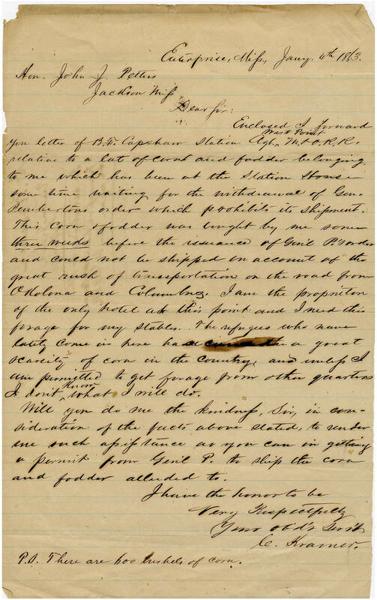 Enterprise, Miss, Jany. 4th 1863.
Hon. John J. Pettus
Jackson Miss
Dear Sir:
Enclosed I forward
West Point
you letter of B.F. Capshaw Station Agt, M. & O. R. R.
relation to a lot of corn and fodder belonging
to me which has been at the Station House
some time waiting for the withdrawal of Genl
Pembertons order which prohibits its shipment.
This corn & fodder was bought by me some
three weeks before the issuance of Genl P. order
and could not be shipped on account of the
great rush of transportation on the road from
Okolona and Columbus. I am the proprietor
of the only hotel at this point and I need this
forage for my stables. The refugees who have
lately come in here have a great
scarcity of corn in the country, and unless I
am permitted to get forage from other quarters
I don't know what I will do.
Will you do me the kindness, Sir, in con-
sideration of the facts above stated, to render
me such assistance as you can in getting
a permit from Genl P. to ship the corn
and fodder alluded to.
I have the honor to be
Very Respectfully
Your Obd't Servt
C. Kramer.
P.S. There are 600 bushels of corn.